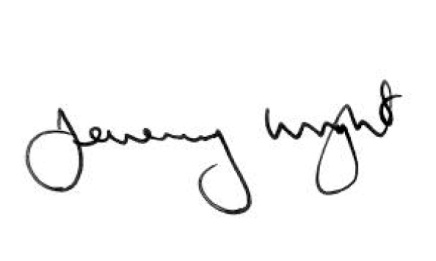 Jeremy Wright